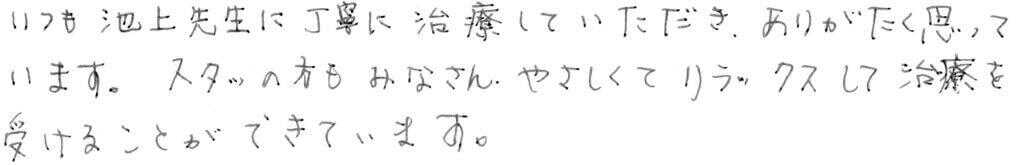 いつも池上先生に丁寧に治療していただき、ありがたく思って
います。スタッの方もみなさん、やさしくてリラックスして治療を
受けることができています。